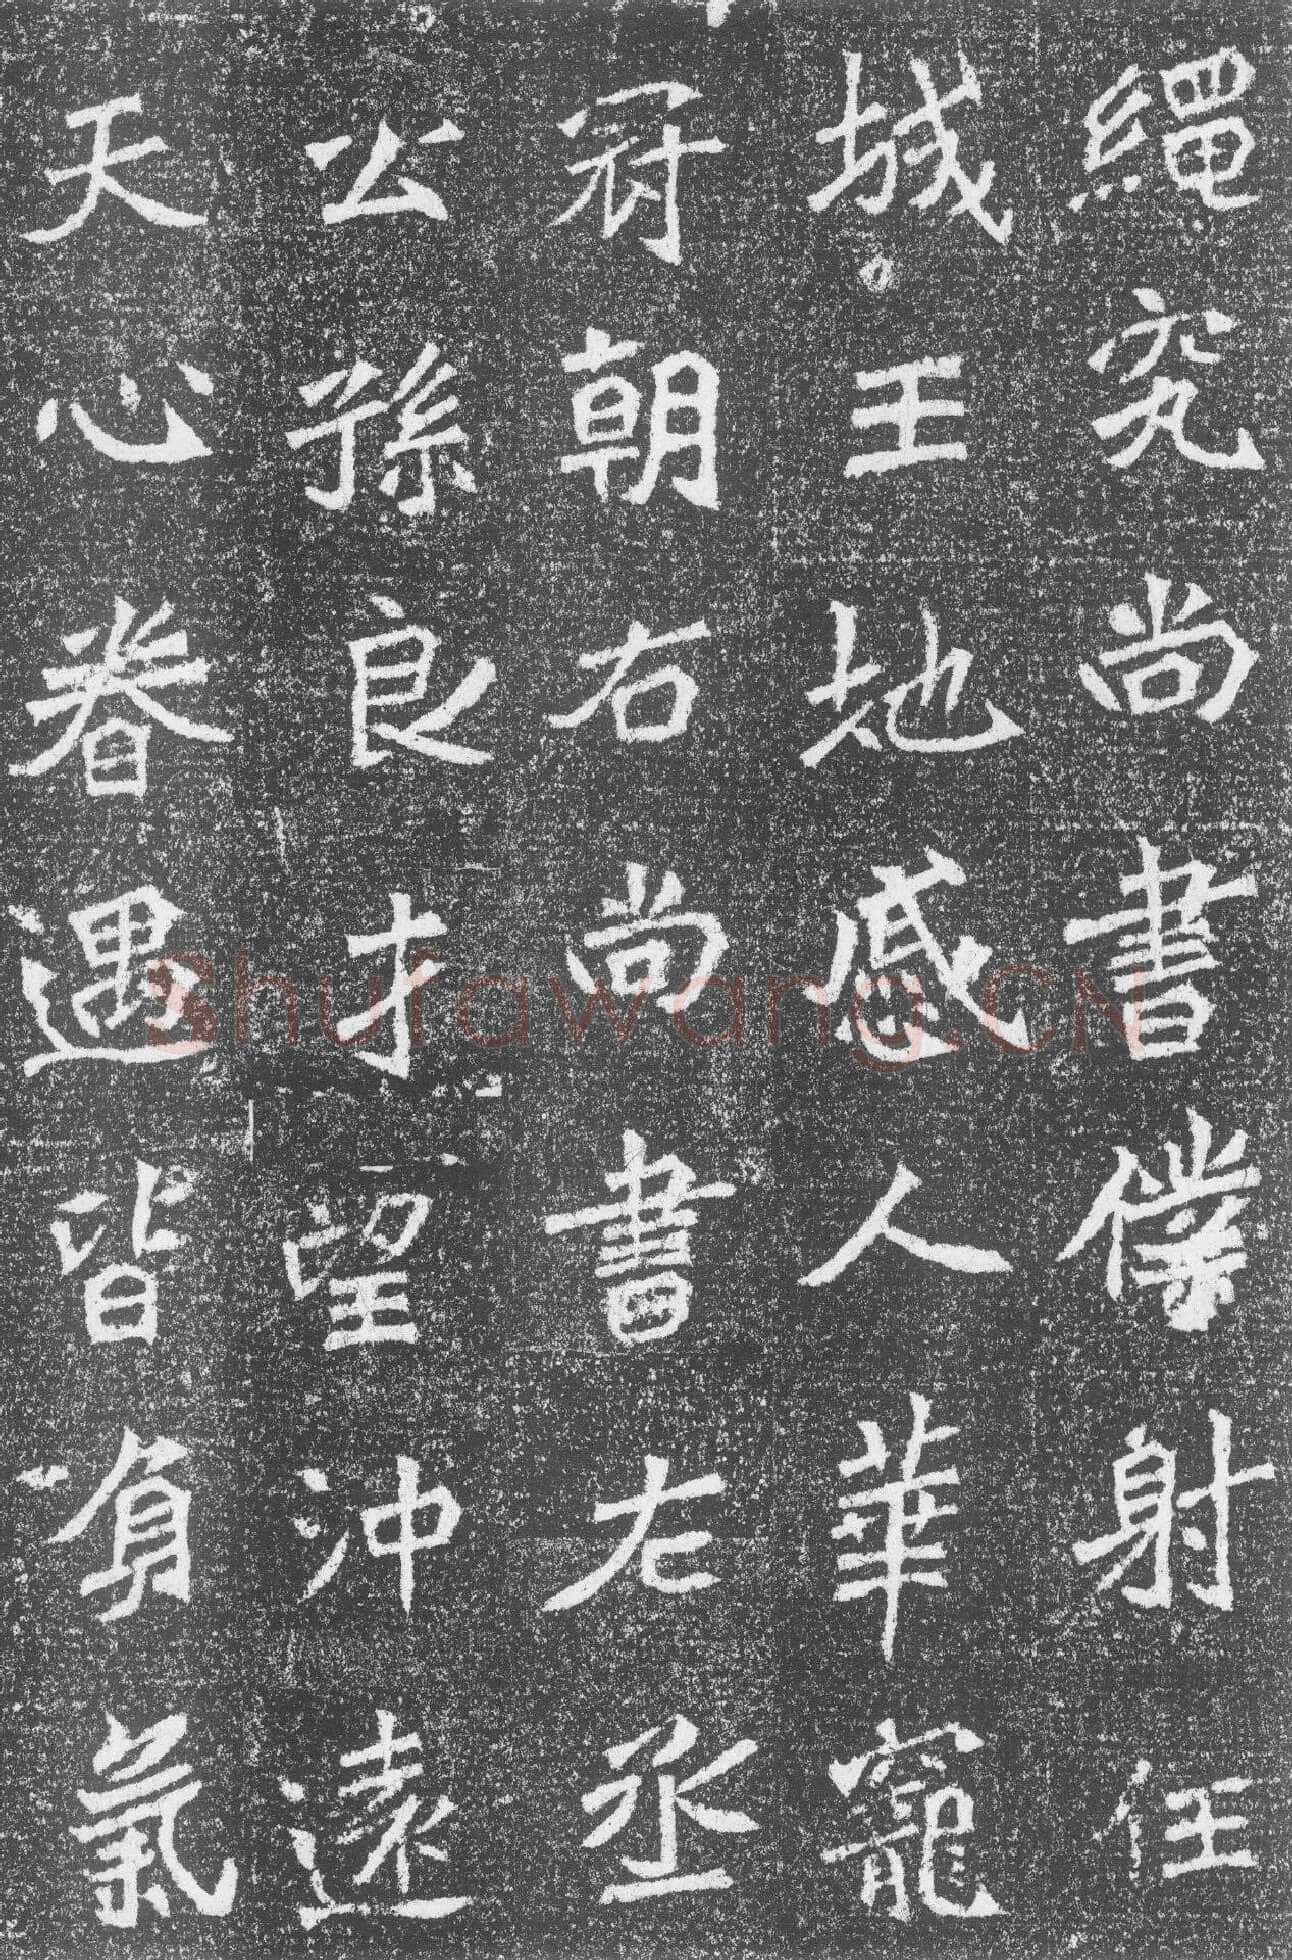 繩究尚書僕射任
城王地感人華寵
冠朝右尚書左丞
公孫良才望沖遠
天心眷遇皆負氣
Shufawang.CN